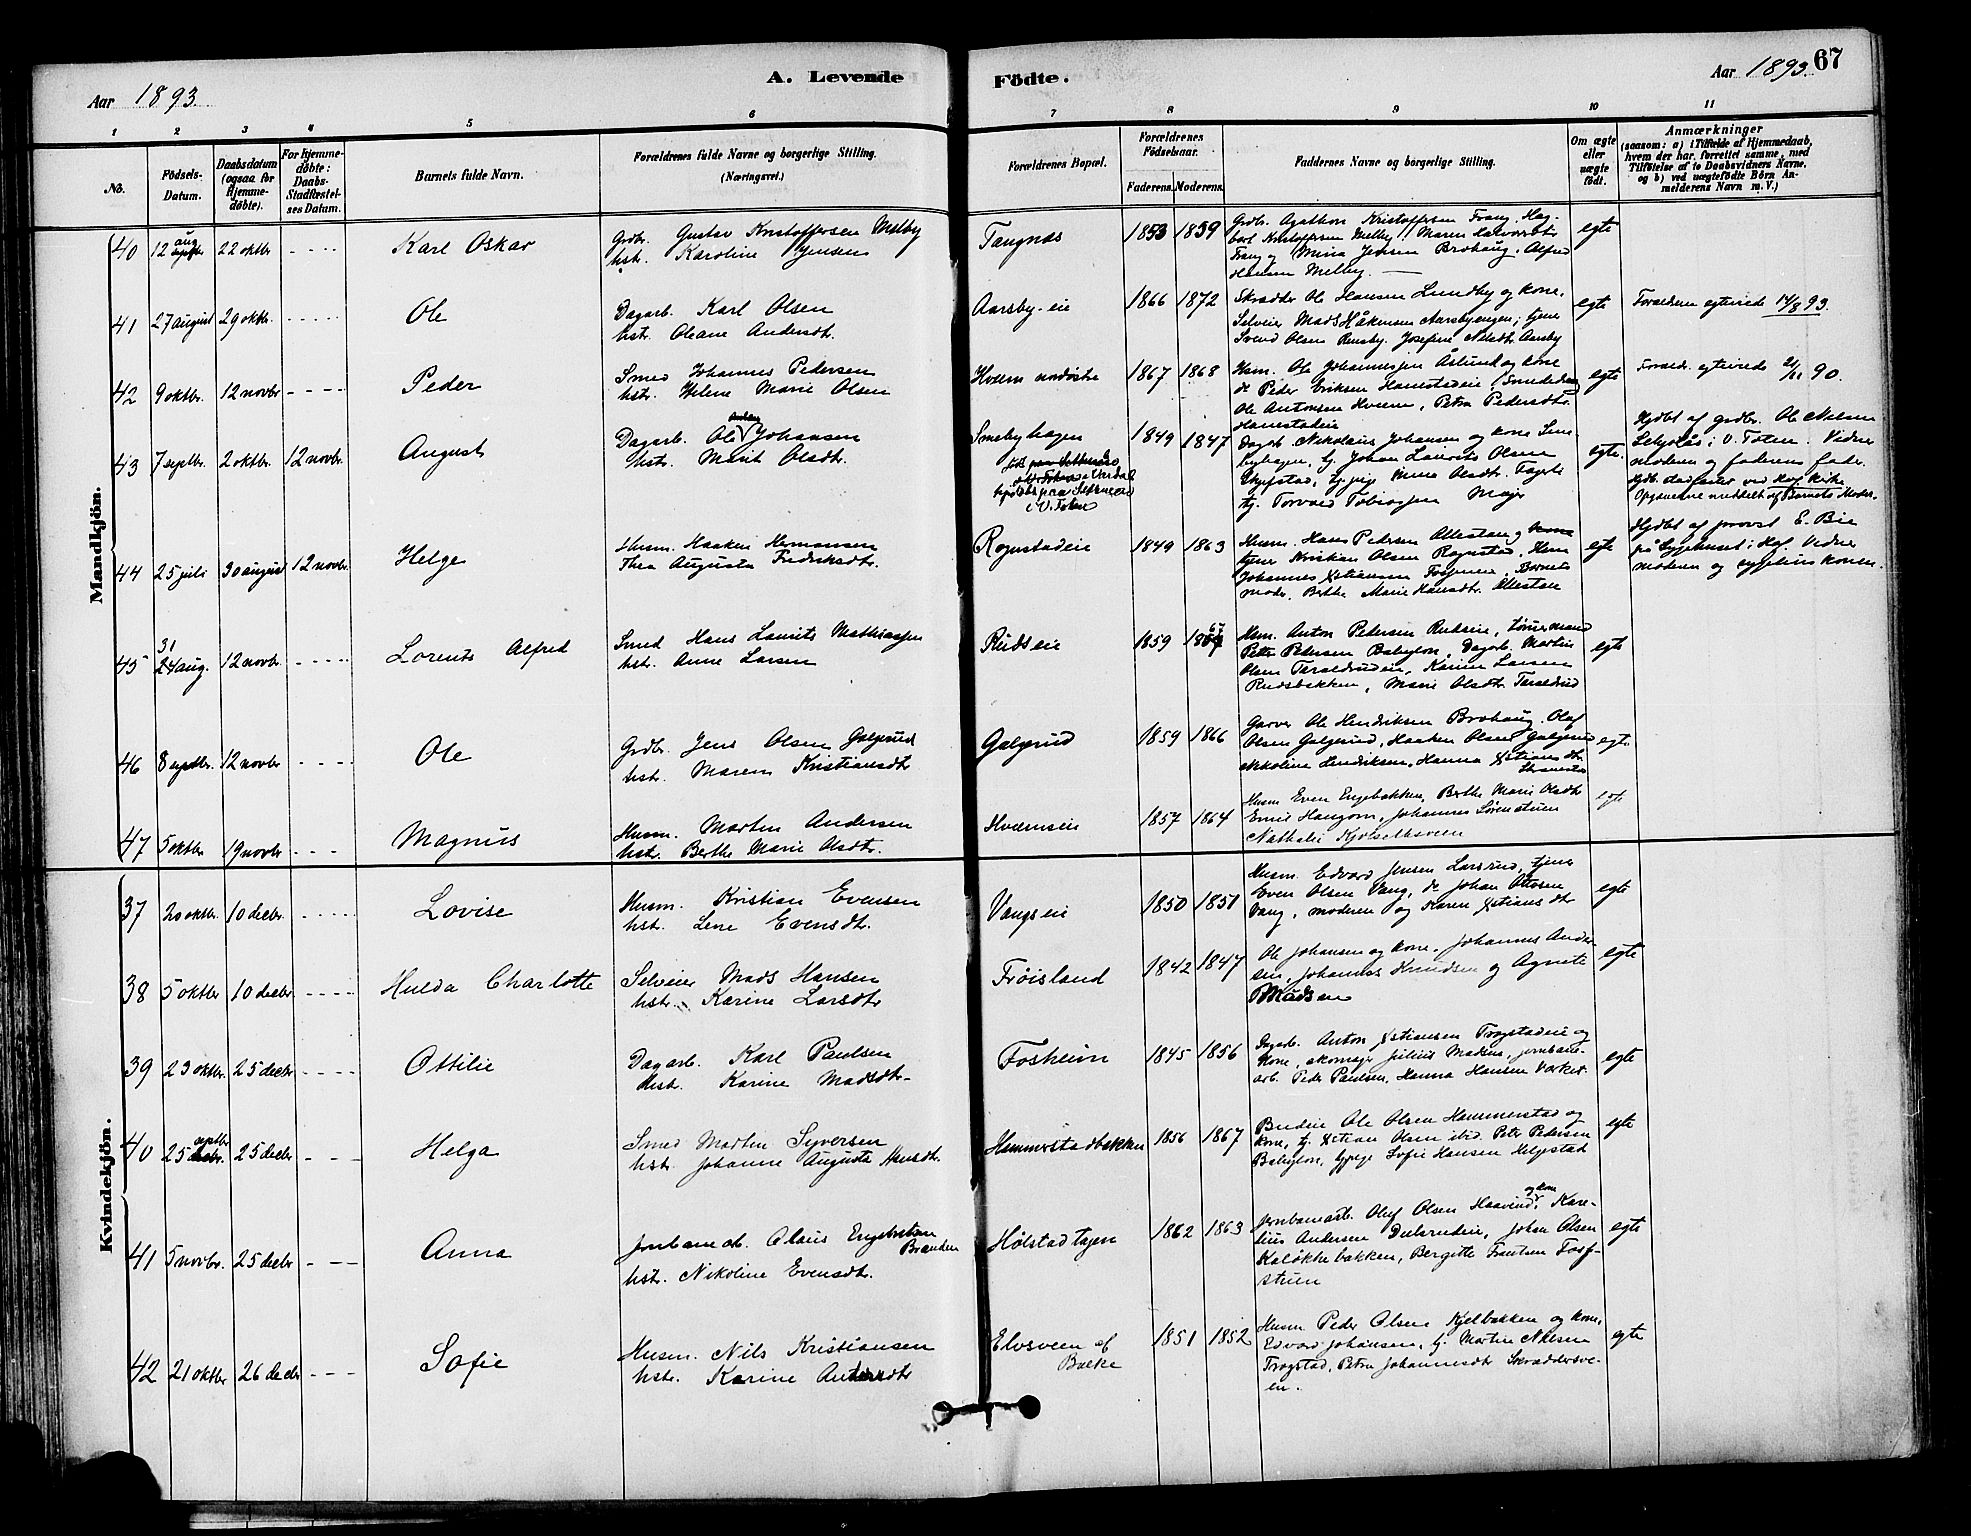 Aar 1893.
A. Levende
Födte.
Aar 1893.
67
1 2 3 4 5 6 7 8 9 10 11
No.
Födsels-Datum.
Daabsdatum (ogsaa for Hjemme-döbte).
For Hjemme-döbte: Daabs-Stadfæstel-ses Datum.
Barnets fulde Navn.
Forældrenes fulde Navne og borgerlige Stilling.
(Næringsvei.)
Forældrenes Bopæl.
Forældrenes Födselsaar.
Faderens. Moderens.
Faddernes Navne og borgerlige Stilling.
Om ægte eller uægte födt.
Anmærkninger
(saasom: a) i Tilfælde af Hjemmedaab, hvem der har forrettet samme, med Tilföielse af to Daabsvidners Navne, og b) ved uægtefödte Börn An-melderens Navn m. V.)
Mandkjön.
40 12 aug 22 oktbr - - - - Karl Oskar
Grdbr. Gustav Kristoffersen Melby
hstr. Karoline Jensen
Tangnæs 1853 1839
Grdbr. Agathon Kristoffersen Frang, Hag-
bart Kristoffersen Melby, Maren
Frang og Mina Jensen Brohaug. Alfred
Hansen Melby.
egte
41 27 august 29 oktbr. - - - - Ole
Dagarb. Karl Olsen
hstr. Oleane Andersdt.
Aarsby-eie 1866 1872
Skrædder Ole Hansen Lundby og kone,
Selveier Mads Håkensen Aarsbyengen; tjener
Svend Olsen Rensby. Josefine Nilsdt Aarsby
egte
Foreldrene egteviede 14/8 93.
42 9 oktbr. 12 novbr - - - - Peder
Smed Johannes Pedersen
hstr. Helene Marie Olsen
Hveem nordistre 1867 1868
Husm. Ole Johannessen Åslund og kone
do Peder Eriksen Hanestadeie (Smededreng)
Ole Antonsen Hveem, Petra Pedersdtr
Hanestadeie
egte
Foreld. egteviede 90.
43 7 septbr. 2 oktbr. 12 novbr. August
Dagarb. Ole Johansen
hstr. Marit Olsdtr.
Smebyhagen
V. Toten
1849 1847
Dagarb. Nikolaus Johansen og kone Sme-
byhagen, tj. Johan Laurits Olsen
Skjefstad, tj. pige Mina Olsdt.
tj. Torvald Tobiassen
egte.
Hjdbt af grdbr. Ole Nilsen
i V. Toten. Vidner
moderen og faderens fader.
Hjdb. stadfæstet ved Hof kirke
Opgaverne meddelt af Barnets Moder.
44 25 juli 30 august 12 novbr. Helge
Husm. Haaken Hermansen
Thea Augusta Fredriksdt.
Rognstadeie 1849 1863
Husm. Hans Pedersen Allestan og kone
tjener Kristian Olsen Rognstad, Husm
Johannes Xstiansen Fossjeneie, Barnets
moder, Berthe Marie Hansdtr. Allestan
egte
Hjdbt af provst E. Bie
på sygehuset i Hof. Vidner
moderen og sygehuskonen.
45 31 24 aug. 12 novbr. - - - - - Lorents Alfred
Smed Hans Laurits Mathiassen
hstr. Anne Larsen
Rudseie 1859
Husm. Anton Pedersen Rudseie, tømmermand
Peter Pedersen Babylon, Dagarb. Martin
Olsen Taraldrudeie, Karine Larsen
Rudsbakken, Marie Olsdt. Taraldrud
egte
46 8 septbr. 12 novbr - - - - Ole
Grdbr. Jens Olsen Galgerud
hstr. Maren Kristiansdt
Galgerud 1859 1866
Garver Ole Hendriksen Brohaug. Olaf
Olsen Galgerud, Haaken Olsen Galgerud
Nikoline Hendriksen, Hanna Xstiansdt.
egte
47 5 oktbr 19 novbr - - - Magnus
Husm. Martin Andersen
hstr. Berthe Marie Olsdtr.
Hveemseie 1857 1864
Husm Even Engebakken, Berthe Marie Olsdtr
Emil Haugom, Johannes Sørenstuen
Nathalie Kjølsethsveen
egte
Kvindekjön.
37 20 oktbr 10 decbr. - - - - Lovise
Husm. Kristian Evensen
hstr. Lene Evensdtr.
Vangseie 1850 1851
Husm. Edvard Jensen Larsrud, tjener
Even Olsen Vang, do Johan Ottosen
Vang, moderen og Karen Xstiansdtr
egte
38 5 oktbr 10 decbr - - - - Hulda Charlotte
Selveier Mads Hansen
hstr. Karine Larsdtr
Frøisland 1842 1847
Ole Johansen og kone, Johannes Ander-
sen, Johannes Knudsen og Agnete
Madsen
egte
39 23 oktbr. 25 decbr - - - - Ottilie
Dagarb. Karl Paulsen
Hstr. Karine Madsdtr.
Fosheim 1845 1856
Dagarb. Anton Xstiansen Trogstadeie og
kone, skomager Julius Madsen, jernbane-
arb. Peder Paulsen, Hanna Hansen
egte
40 25 septbr 25 decbr - - - Helga
Smed Martin Syversen
hstr. Johanne Augusta Hansdtr.
Hammerstadbakken 1856 1867
Budeie Ole Olsen Hammerstad og
kone, tj. Xstian Olsen ibid. Peter Pedersen
Babylon, tj. pige Sofie Hansen Helgestad
egte
41 5 novbr. 25 decbr - - - Anna
Jernbanearb. Olaus Engebretsen
Brænden
hstr. Nikoline Evensdtr.
Hølstadtajen 1862 1863
Jernbanearb. Oluf Olsen Haarud og kone, Kare-
lius Andersen Dulsrudeie, Johan Olsen
Kaløkkebakken, Bergitte Frantsen Foss-
stuen
egte
42 21 oktbr 26 decbr - - - Sofie
Husm. Nils Kristiansen
hstr. Karine Andersdtr
Elvsveen af
Balke
1851 1852
Husm Peder Olsen Kjelbakken og kone,
Edvard Johansen, tj. Martin Nilsen
Trogstad, Petra Johannesdtr Skræddersve-
en.
egte